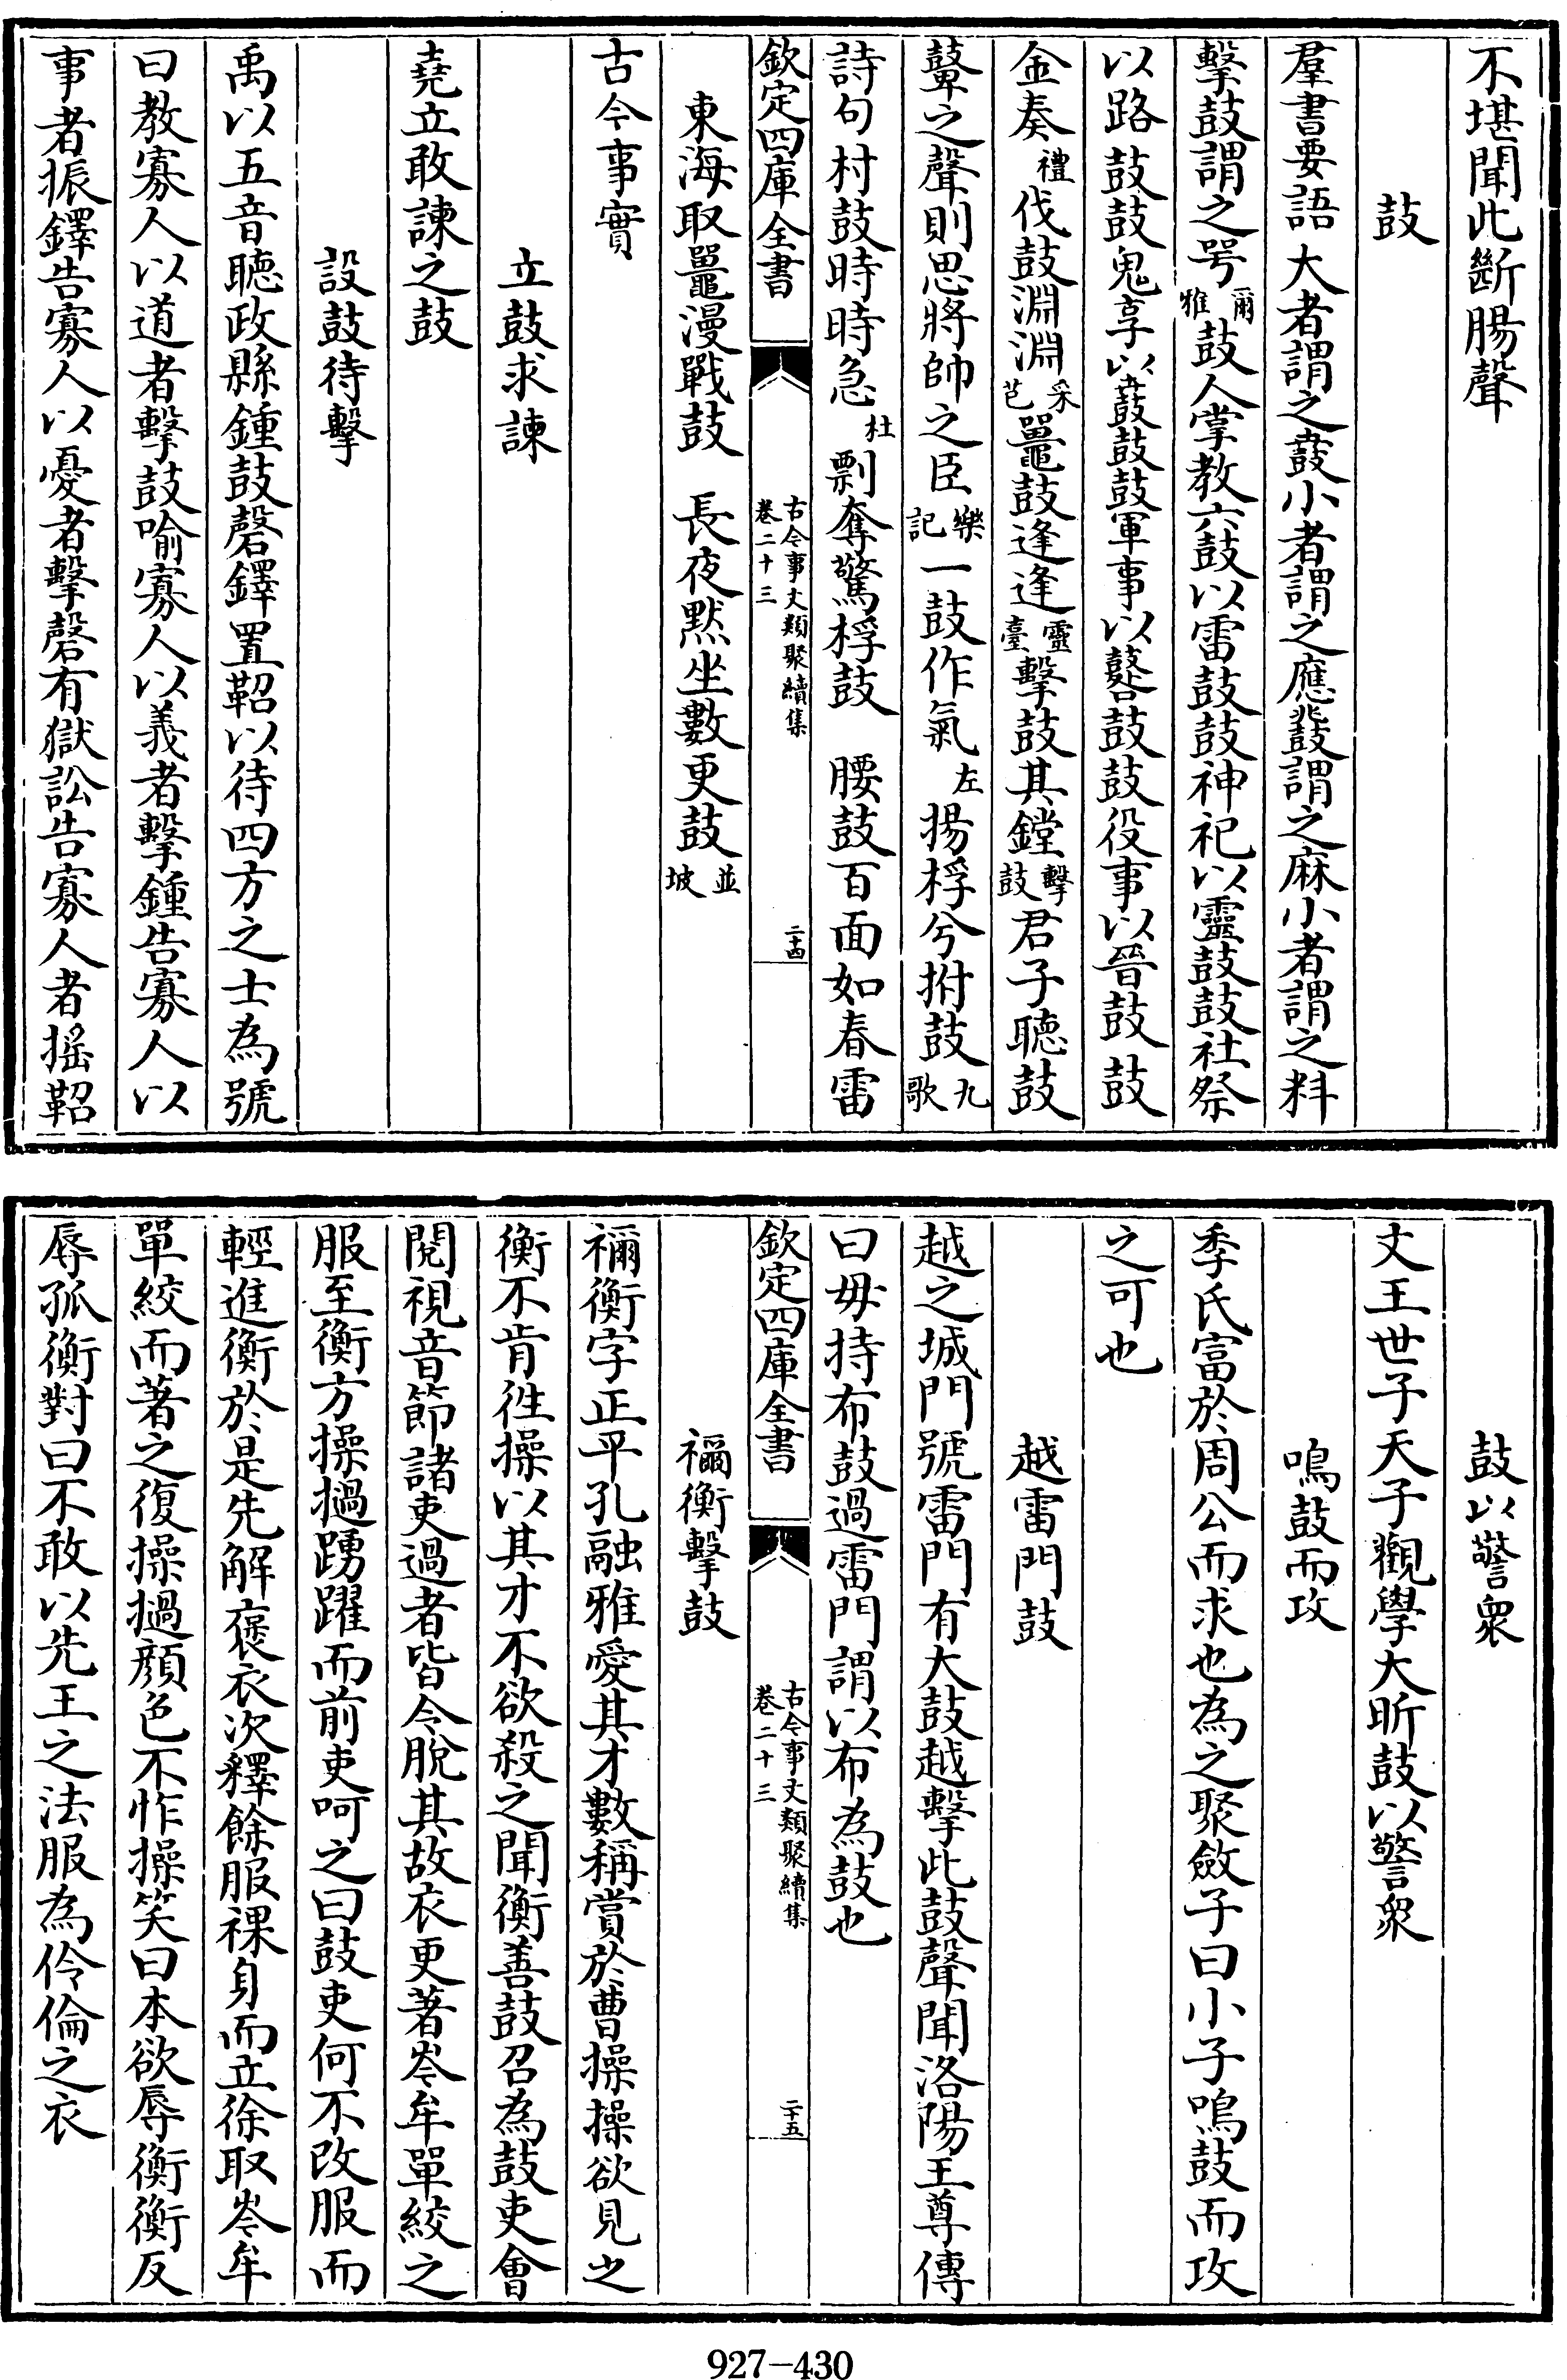 不堪聞此斷腸聲
鼓
羣書要語 大者謂之鼖小者謂之應鼛謂之麻小者謂之料
擊鼓謂之咢爾雅鼓人掌教六鼓以雷鼓鼓神祀以靈鼓鼓社祭
以路鼓鼓鬼享以鼖鼓鼓軍事以鼛鼓鼓役事以晉鼓鼓
金奏禮伐鼓淵淵采芑鼉鼓逢逢靈臺擊鼓其鏜擊鼓君子聽鼓
鼙之聲則思將帥之臣樂記一鼓作氣左揚桴兮拊鼓九歌
詩句村鼓時時急杜 剽奪驚桴鼓 腰鼓百面如春雷
欽定四庫全書 古今事文類聚續集卷二十三 二十四
東海取鼉漫戰鼓 長夜默坐數更鼓並坡
古今事實
立鼓求諫
堯立敢諫之鼓
設鼓待擊
禹以五音聽政縣鍾鼓磬鐸置鞀以待四方之士為號
曰教寡人以道者擊鼓喻寡人以義者擊鍾告寡人以
事者振鐸告寡人以憂者擊磬有獄訟告寡人者搖鞀
鼓以警眾
文王世子天子觀學大昕鼓以警眾
鳴鼓而攻
季氏富於周公而求也為之聚斂子曰小子鳴鼓而攻
之可也
越雷門鼓
越之城門號雷門有大鼓越擊此鼓聲聞洛陽王尊傳
曰毋持布鼓過雷門謂以布為鼓也
欽定四庫全書 古今事文類聚續集卷二十三 二十五
禰衡擊鼓
禰衡字正平孔融雅愛其才數稱賞於曹操操欲見之
衡不肯徃操以其才不欲殺之聞衡善鼓召為鼓吏會
閱視音節諸吏過者皆令脫其故衣更著岑牟單絞之
服至衡方操撾踴躍而前吏呵之曰鼓吏何不改服而
輕進衡於是先解褻衣次釋餘服祼身而立徐取岑牟
單絞而著之復操撾顏色不怍操笑曰本欲辱衡衡反
辱孤衡對曰不敢以先王之法服為伶倫之衣
927-430